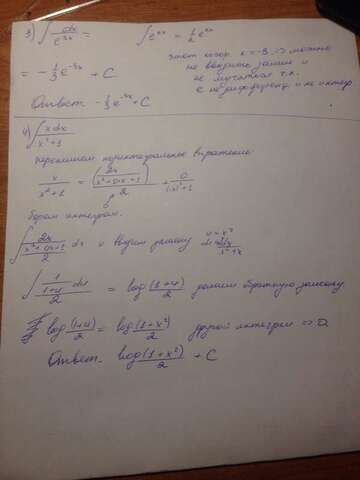 3) ∫ dx/e^{3x} = ∫ e^{kx} = 1/k e^{kx}
= -1/3 e^{-3x} + C
можно
не вводить замену и
не мучаться т.к.
Ответ -1/3 e^{-3x} + C
4) ∫ x dx/x²+1
перепишем подинтегральное выражение
x/x²+1 = (2x/x²+0·x+1)/2 + 0/(x)²+1
берем интеграл.
∫ (2x/x²+0x+1)/2 dx и вводим замену u = x²
∫ (1/1+u)/2 du = log(1+u)/2 делаем обратную замену
log(1+u)/2 = log(1+x²)/2 другой интеграл => 0
Ответ. log(1+x²)/2 + C